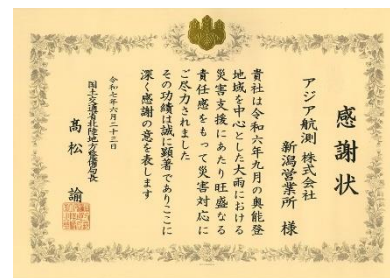 感謝状
アジア航測 株式会社
新潟営業所 様
貴社は令和六年九月の奥能登
地域を中心とした大雨における
災害支援にあたり旺盛なる
責任感をもって災害対応に
ご尽力されました
その功績は誠に顕著でありここに
深く感謝の意を表します
令和七年六月二十三日
国土交通省北陸地方整備局長
髙松 諭